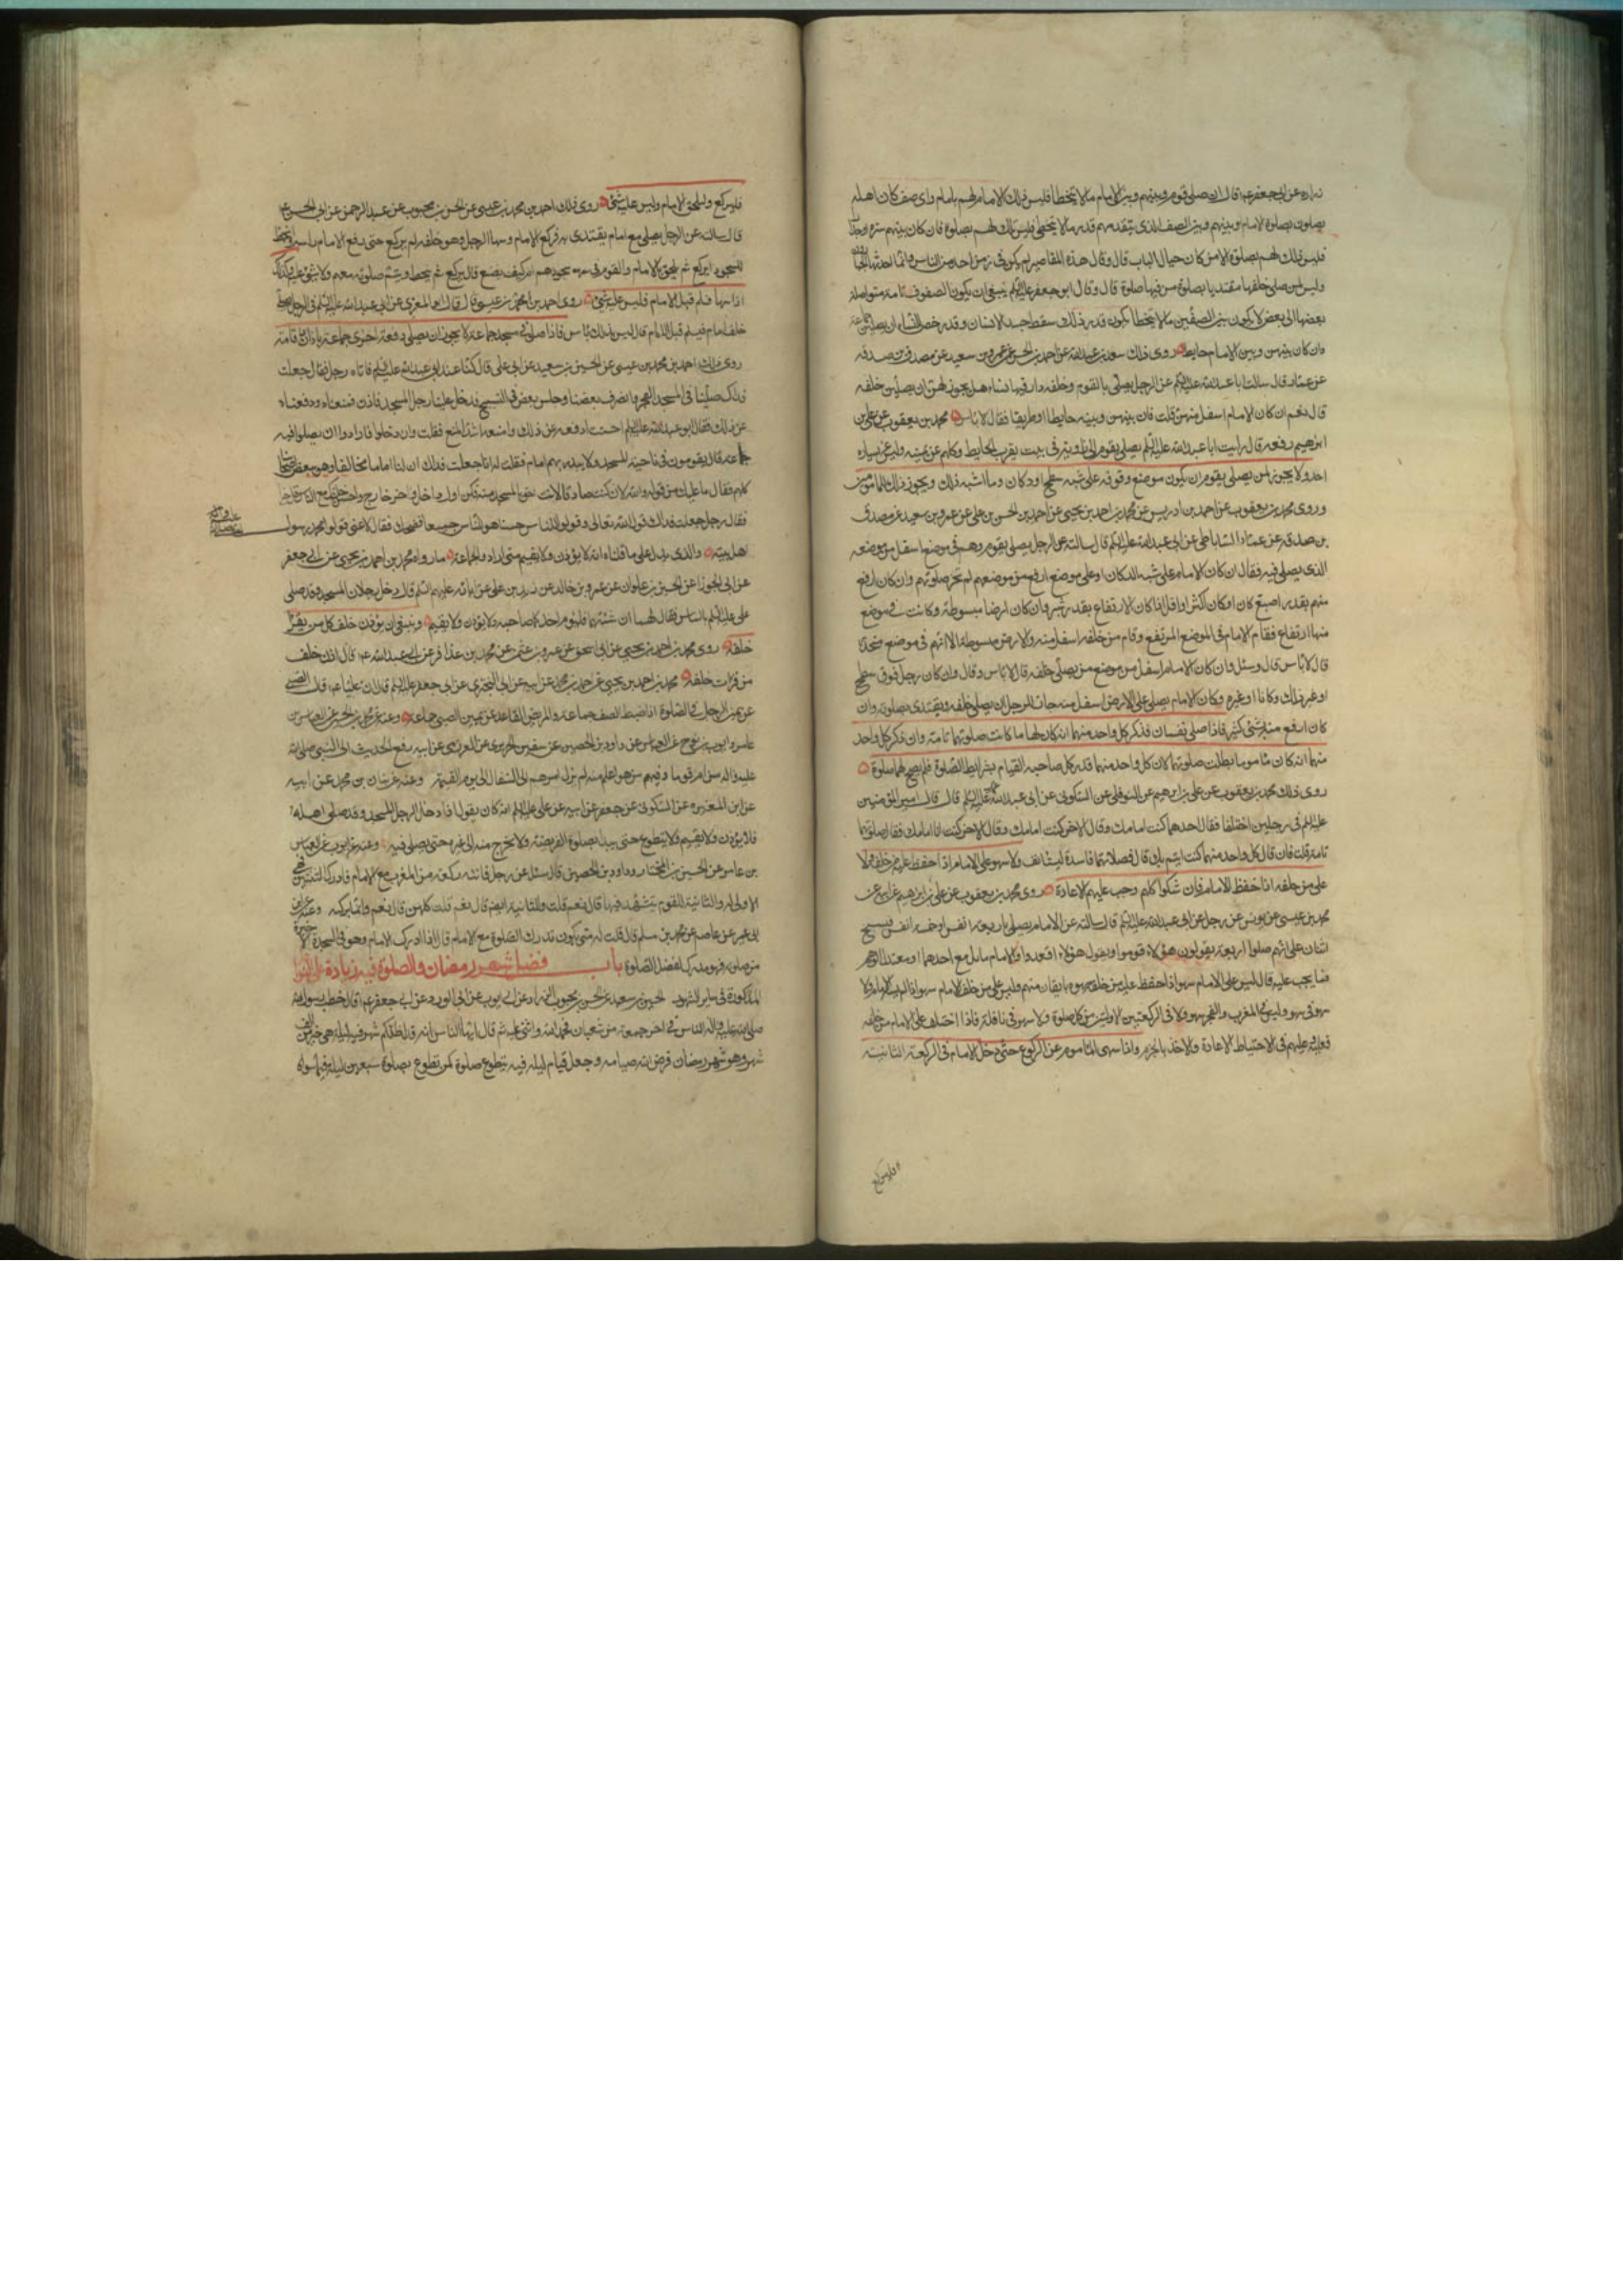 زراره عن ابي جعفر ع قال ان صلى قوم وبينهم وبين الامام ما لا يتخطا فليس ذلك الامام لهم بامام واى صف كان اهله
يصلون بصلوة الامام وبينهم وبين الصف الذى يتقدمهم قدر ما لا يتخطى فليس تلك لهم بصلوة فان كان بينهم ستره او جدار
فليس تلك لهم بصلوة الا من كان حيال الباب قال وقال هذه المقاصير لم يكن فى زمن احد من الناس وانما احدثها الجبارون
وليس لمن صلى خلفها مقتديا بصلوة من فيها صلوة قال وقال ابو جعفر عليه السلم ينبغى ان يكون الصفوف تامة متواصلة
بعضها الى بعض لا يكون بين الصفين ما لا يتخطا يكون قدر ذلك سقط جسد الانسان وقد رخص للنساء ان يصلين
وان كان بينهن وبين الامام حايط روى ذلك سعد بن عبد الله عن احمد بن الحسن عن عمرو بن سعيد عن مصدق بن صدقه
عن عمار قال سالت ابا عبد الله عليه السلم عن الرجل يصلى بالقوم وخلفه دار فيها نساء هل يجوز لهن ان يصلين خلفه
قال نعم ان كان الامام اسفل منهن قلت فان بينهن وبينه حايطا او طريقا فقال لا باس محمد بن يعقوب عن على بن
ابرهيم رفعه قال رايت ابا عبد الله عليه السلم يصلى بقوم وهو فى بيت بقرب الحايط وكلهم عن يمينه وليس عن يساره
احد ولا يجوز لمن يصلى بقوم ان يكون موضع وقوفه على شبه سطح او دكان وما اشبه ذلك ويجوز ذلك للمامومين
وروى محمد بن يعقوب عن احمد بن ادريس عن محمد بن احمد بن يحيى عن احمد بن الحسن بن على عن عمرو بن سعيد عن مصدق
بن صدقه عن عمار الساباطى عن ابى عبد الله عليه السلم قال سالته عن الرجل يصلى بقوم وهم فى موضع اسفل من موضعه
الذى يصلى فيه فقال ان كان الامام على شبه الدكان او على موضع ارفع من موضعهم لم تجز صلوتهم وان كان ارفع
منهم بقدر اصبع كان او كان اكثر او اقل اذا كان الارتفاع بقدر شبر وان كان ارضا مبسوطة وكانت فى موضع
منها ارتفاع فقام الامام فى الموضع المرتفع وقام من خلفه اسفل منه والارض مبسوطة الا انهم فى موضع منحدر
قال لا باس قال وسئل وان كان الامام اسفل من موضع من يصلى خلفه قال لا باس وقال وان كان رجل فوق سطح
او غير ذلك وكانا او غيره وكان الامام يصلى على الارض اسفل منه جاز للرجل ان يصلى خلفه ويقتدى بصلوته وان
كان ارفع منه بشئ كثير فاذا صلى نفسان فذكر كل واحد منهما انه كان اماما كانت صلوتهما تامة وان ذكر كل واحد
منهما انه كان ماموما بطلت صلوتهما لان كل واحد منهما قد وكل صاحبه القيام بشرايط الصلوة فلم يصح لهما صلوة
روى ذلك محمد بن يعقوب عن على بن ابرهيم عن النوفلى عن السكونى عن ابى عبد الله عليه السلم قال قال امير المؤمنين
عليه السلم فى رجلين اختلفا فقال احدهما كنت امامك وقال الاخر كنت امامك وقال الاخر كنت انا امامك فقال صلوتهما
تامة قلت فان قال كل واحد منهما كنت ايتم بك قال فصلاتهما فاسدة ليستانف ولا سهو على الامام اذا حفظ عليه من خلفه ولا
على من خلفه اذا حفظ الامام فان شكوا كلهم وجب عليهم الاعادة روى محمد بن يعقوب عن على بن ابرهيم عن ابيه عن
محمد بن عيسى عن يونس عن رجل عن ابى عبد الله عليه السلم قال سالته عن الامام يصلى باربعة انفس او خمسة انفس فيسبح
اثنان على انهم صلوا اربعة يقولون هؤلاء قوموا ويقول هؤلاء اقعدوا والامام مايل مع احدهما او معتدل الوهم
فما يجب عليه قال ليس على الامام سهو اذا حفظ عليه من خلفه سهوه بايقان منهم وليس على من خلف الامام سهو اذا لم يسه الامام ولا
سهو فى سهو وليس فى المغرب والفجر سهو ولا فى الركعتين الاوليتين من كل صلوة ولا سهو فى نافلة فاذا اختلف على الامام من خلفه
فعليه وعليهم فى الاحتياط الاعادة والاخذ بالجزم واذا سهى الماموم عن الركوع حتى دخل الامام فى الركعة الثانية
فليركع
فليركع وليلحق الامام وليس عليه شئ روى ذلك احمد بن محمد بن عيسى عن الحسن بن محبوب عن عبد الرحمن عن ابى الحسن ع
قال سالته عن الرجل يصلى مع امام يقتدى به فركع الامام وسها الرجل وهو خلفه لم يركع حتى رفع الامام راسه وانحط
للسجود ايركع ثم يلحق بالامام والقوم فى سجودهم ام كيف يصنع قال يركع ثم ينحط ويتم صلوته معهم ولا شئ عليه وكذلك
اذا سها فسلم قبل الامام فليس عليه شئ روى احمد بن محمد بن عيسى قال قال ابو المغرى عن ابى عبد الله عليه السلم فى الرجل يصلى
خلف امام فيسلم قبل الامام قال ليس بذلك باس فاذا صلى فى مسجد جماعة لا يجوز ان يصلى دفعة اخرى جماعة باذان واقامة
روى ذلك احمد بن محمد بن عيسى عن الحسين بن سعيد عن ابى على قال كنا عند ابى عبد الله عليه السلم فاتاه رجل فقال جعلت
فداك صلينا فى المسجد الفجر وانصرف بعضنا وجلس بعض فى التسبيح فدخل علينا رجل المسجد فاذن فمنعناه ودفعناه
عن ذلك فقال ابو عبد الله عليه السلم احسنت ادفعه عن ذلك وامنعه اشد المنع فقلت وان دخلوا فارادوا ان يصلوا فيه
جماعة قال يقومون فى ناحية المسجد ولا يبدر بهم امام فقلت له انا جعلت فداك ان لنا اماما مخالفا وهو يبغض اصحابنا
كلهم فقال ما عليك من قوله والله لان كنت صادقا لانت احق بالمسجد منه فكن اول داخل واخر خارج واحسن خلقك مع الناس وقل خيرا
فقال رجل جعلت فداك قول الله تعالى وقولوا للناس حسنا هو للناس جميعا فضحك فقال لا عنى قولوا محمد رسول
اهل بيته والذى يدل على ما قلناه انه لا يؤذن ولا يقيم متى اراد والجماعة ما رواه محمد بن احمد بن يحيى عن ابى جعفر
عن ابى الجوزا عن الحسين بن علوان عن عمرو بن خالد عن زيد بن على عن ابائه عليهم السلم قال دخل رجلان المسجد وقد صلى
على عليه السلم بالناس فقال لهما ان شئتما فليؤم احدكما صاحبه ولا يؤذن ولا يقيم وينبغى ان يؤذن خلف كل من يقرأ
خلفه روى محمد بن احمد بن يحيى عن ابى اسحق عن عمرو بن عثمن عن محمد بن عذافر عن ابى عبد الله ع قال اذن خلف
من قرات خلفه محمد بن احمد بن يحيى عن احمد بن محمد عن ابيه عن ابى البخترى عن ابى جعفر عليه السلم قال ان عليا ع قال الصبى
عن يمين الرجل فى الصلوة اذا ضبط الصف جماعة والمريض القاعد عن يمين الصبى جماعة وعنه عن محمد بن الحسين عن العباس بن
عامر وايوب بن نوح عن العباس عن داود بن الحصين عن سفين الحريرى عن العرزمى عن ابيه رفع الحديث الى النبى صلى الله
عليه واله من ام قوما وفيهم من هو اعلم منه لم يزل امرهم الى السفال الى يوم القيمة وعنه عن بنان بن محمد عن ابيه
عن ابن المغيره عن السكونى عن جعفر عن ابيه عن على عليه السلم انه كان يقول اذا دخل الرجل المسجد وقد صلى اهله
فلا يؤذن ولا يقيم ولا يتطوع حتى يبدا بصلوة الفريضة ولا يخرج منه الى غيره حتى يصلى فيه وعنه عن ايوب عن العباس
بن عامر عن الحسين بن المختار وداود بن الحصين قال سئل عن رجل فاتته ركعة من المغرب مع الامام فادرك الثنتين فهى
الاولى له والثانية للقوم يتشهد فيها قال نعم قلت وللثانية ايضا قال نعم قلت كلهن قال نعم وانما بركة وعنه
عن عاصم عن محمد بن مسلم قال قلت له متى يكون تدرك الصلوة مع الامام قال اذا ادرك الامام وهو فى السجدة الاخيرة
من صلوته فهو مدرك لفضل الصلوة باب فضل شهر رمضان والصلوة فيه زيادة على النوافل
المذكورة فى ساير الشهور الحسين بن سعيد عن الحسن بن محبوب عن ابى ايوب عن ابى الورد عن ابى جعفر ع قال خطب رسول الله
صلى الله عليه واله الناس فى اخر جمعة من شعبان فحمد الله واثنى عليه ثم قال ايها الناس انه قد اظلكم شهر فيه ليلة هى خير من الف
شهر وهو شهر رمضان فرض الله صيامه وجعل قيام ليلة فيه بتطوع صلوة كمن تطوع بصلوة سبعين ليلة فيما سواه